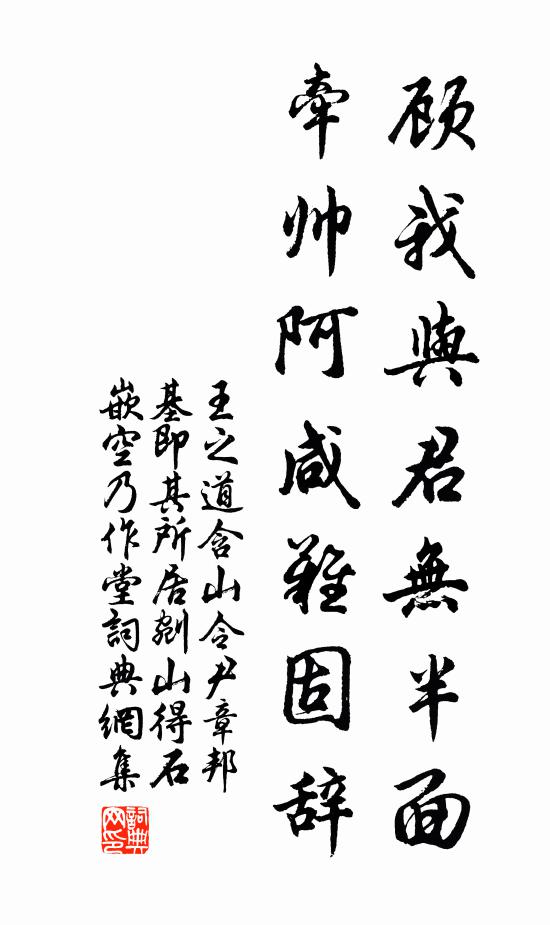 顾我與君無半面
牽帅阿咸難固辞
王之道含山令尹章邦
基即其所居剜山得石
嵌空乃作堂詞典網集
詞典
网印